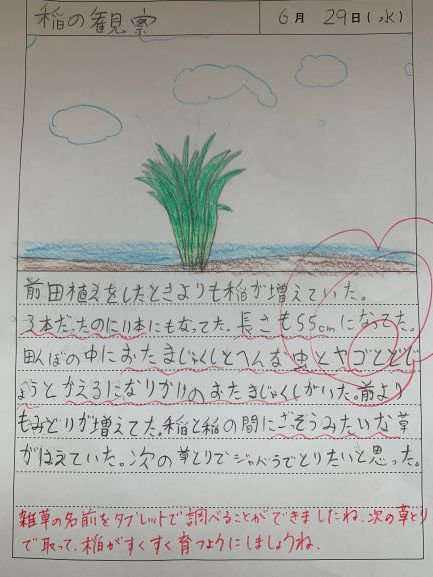 稲の観察
6月 29日(水)
前田植えをしたときよりも稲が増えていた。
3本だったのに11本にもなってた。長さも55cmになってた。
田んぼの中におたまじゃくしとへんな虫とヤゴとどじ
ょうとかえるになりかけのおたまじゃくしがいた。前より
もみどりが増えてた。稲と稲の間にごぞうみたいな草
がはえていた。次の草とりでジャベラでとりたいと思った。
雑草の名前をタブレットで調べることができましたね。次の草とり
で取って、稲がすくすく育つようにしましょうね。